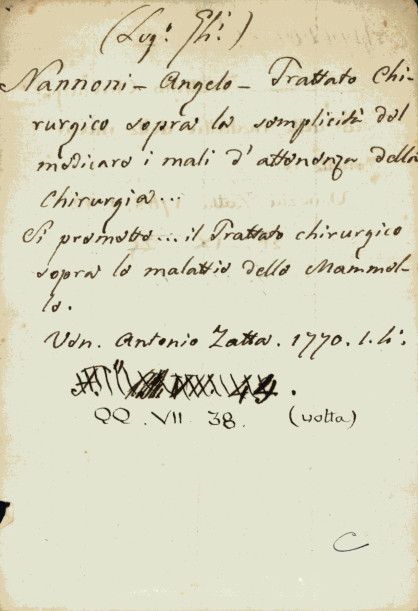 (Lug.° Gh.i)
Nannoni - Angelo - Trattato Chi-
rurgico sopra la semplicità del
medicare i mali d'attenenza della
Chirurgia...
Si premette... il Trattato chirurgico
sopra le malattie delle Mammel-
le.
Ven. Antonio Zatta. 1770. I. li.
44.
QQ. VII 38. (volta)
C